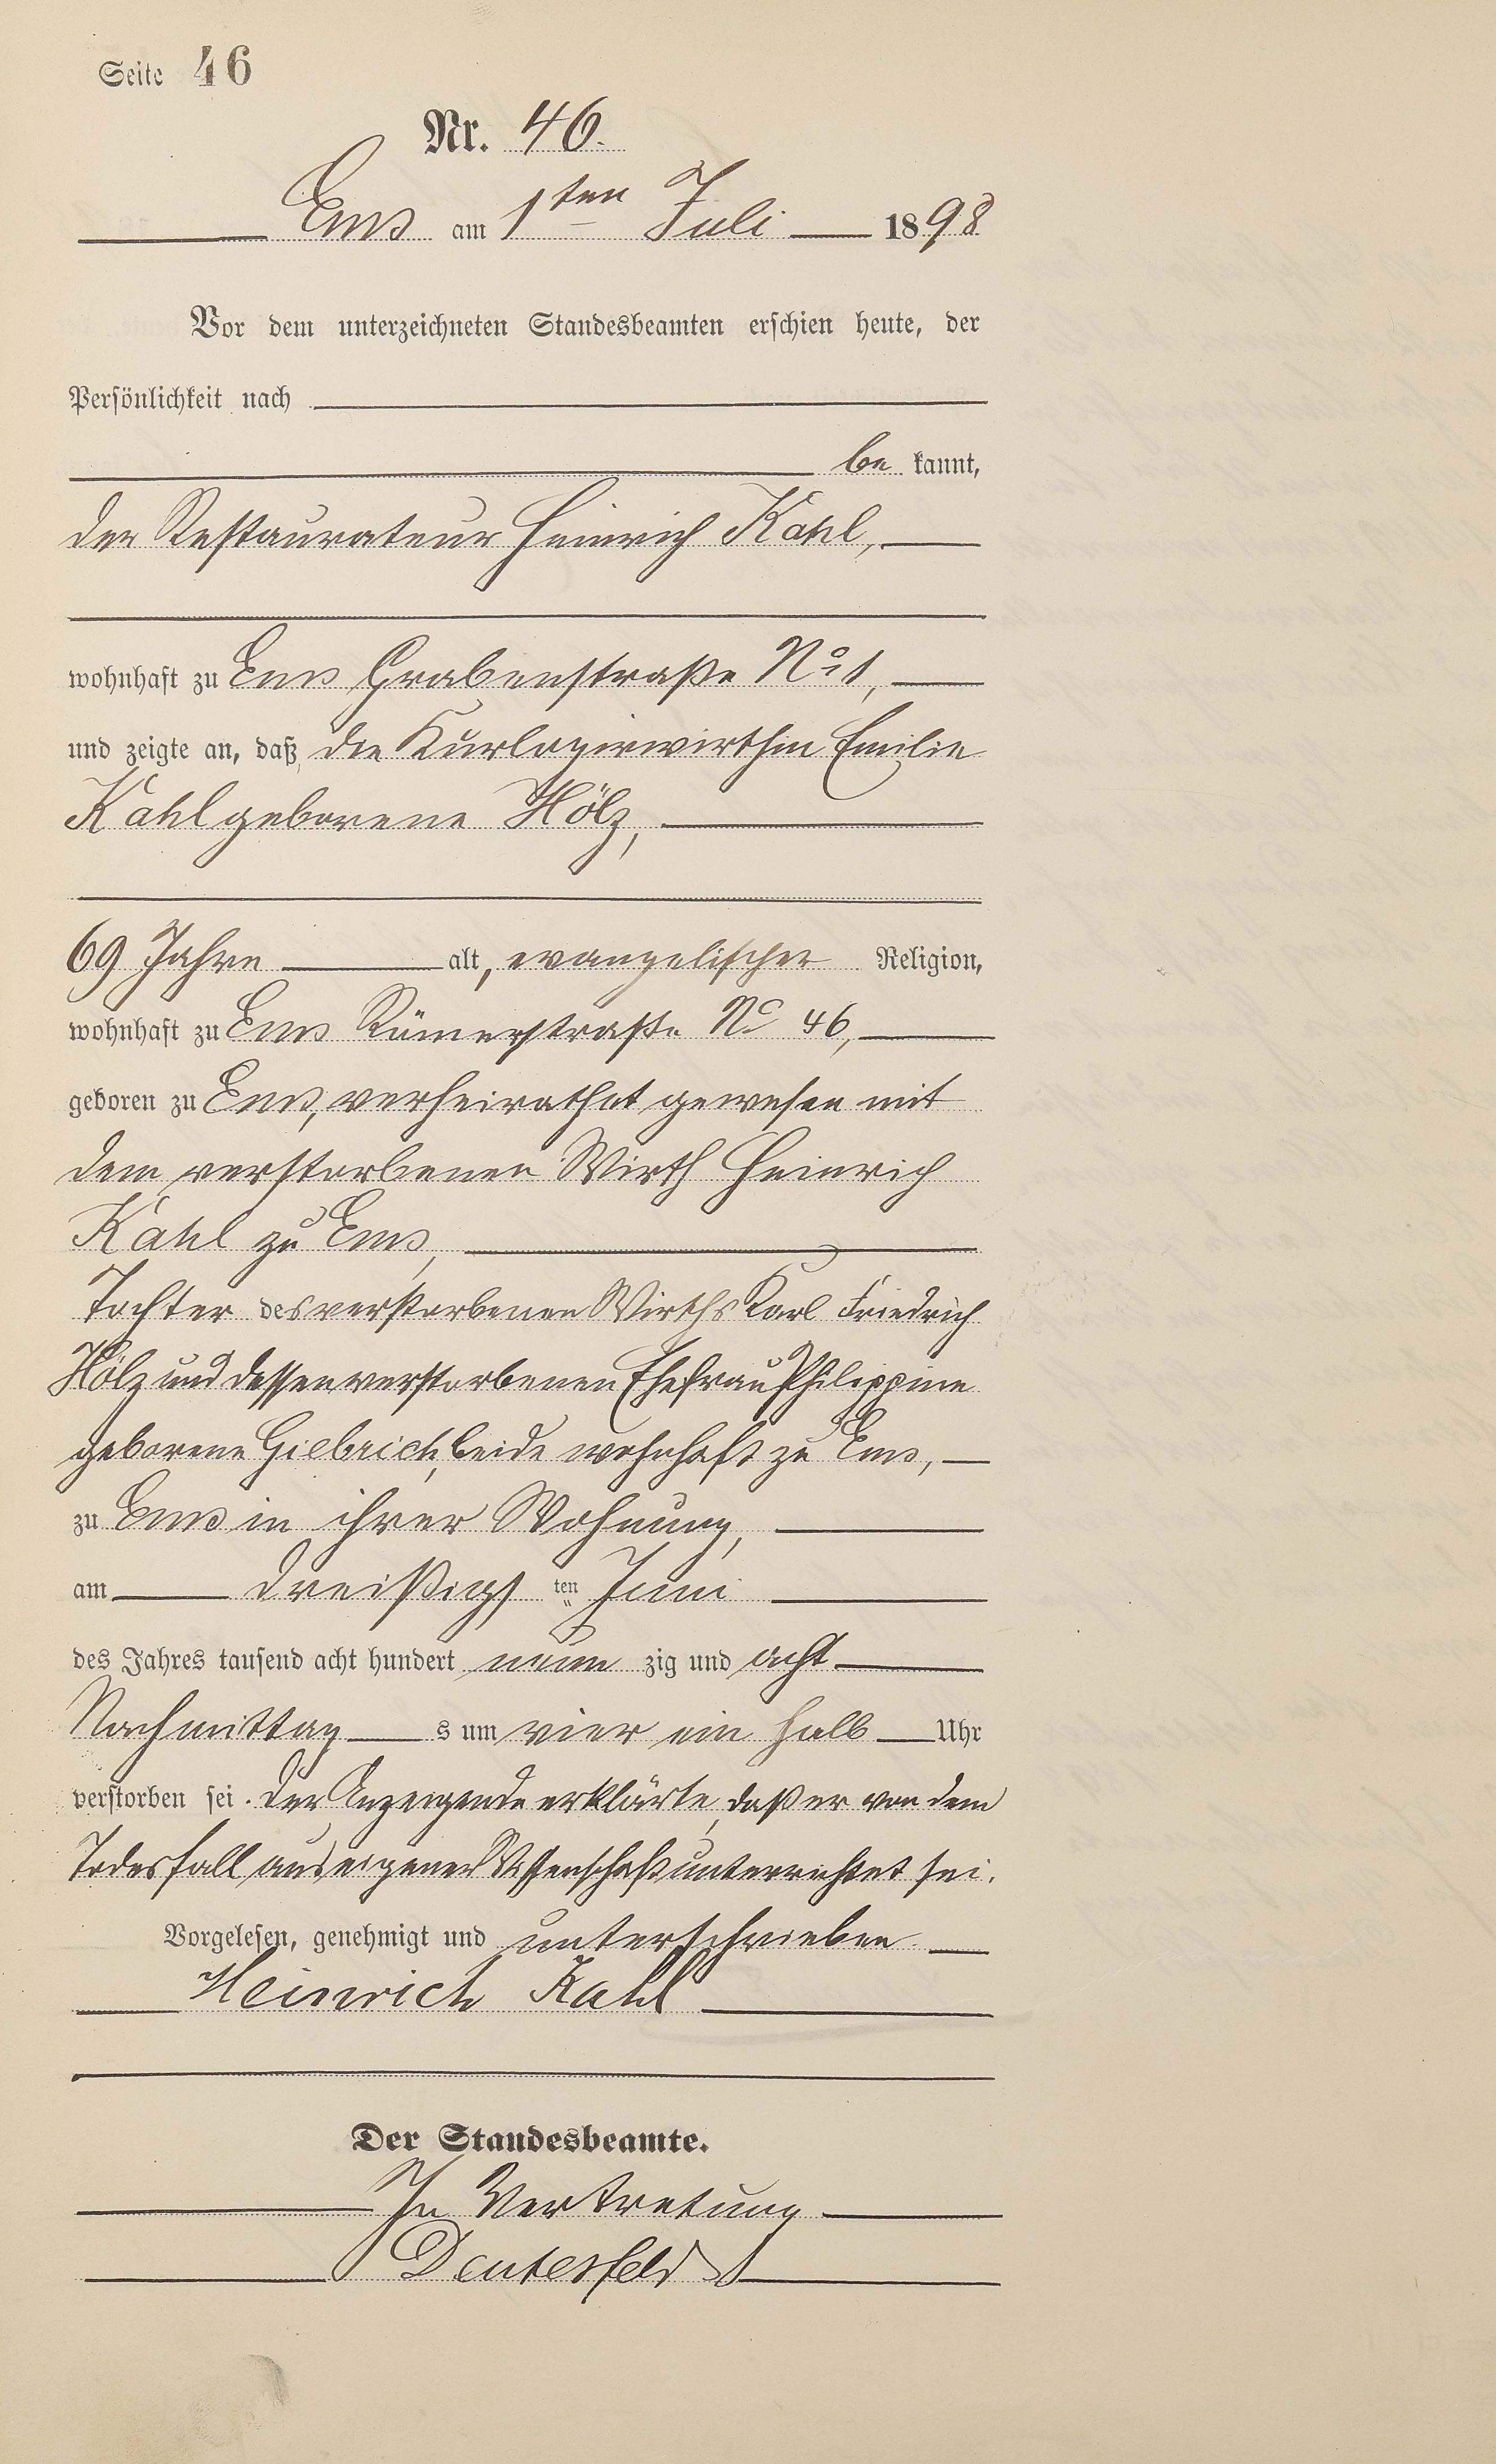 Seite 46
Nr. 46.
Ems am 1ten Juli 1898
Vor dem unterzeichneten Standesbeamten erschien heute, der
Persönlichkeit nach
be kannt,
der Restaurateur Heinrich Kahl,
wohnhaft zu Ems Grabenstraße No 1,
und zeigte an, daß die Kurlogirwirthin Emilie
Kahl geborene Hölz,
69 Jahre alt, evangelischer Religion,
wohnhaft zu Ems Römerstraße No 46,
geboren zu Ems, verheirathet gewesen mit
dem verstorbenen Wirth Heinrich
Kahl zu Ems,
Tochter des verstorbenen Wirths Karl Friedrich
Hölz und dessen verstorbenen Ehefrau Philippine
geborene Giebrich, beide wohnhaft zu Ems,
zu Ems in ihrer Wohnung,
am dreißigs ten Juni
des Jahres tausend acht hundert neun zig und acht
Nachmittag s um vier ein halb Uhr
verstorben sei. Der Anzeigende erklärte, daß er von dem
Todesfall aus eigener Wissenschaft unterrichtet sei.
Vorgelesen, genehmigt und unterschrieben
Heinrich Kahl
Der Standesbeamte.
In Vertretung